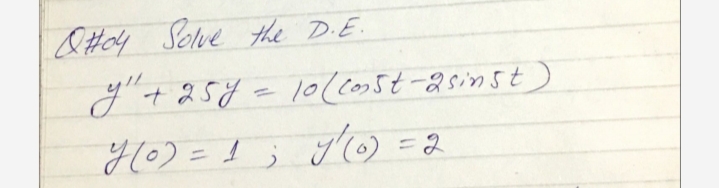 Q#04 Solve the D.E.
y'' + 25y = 10(cos5t-2sin5t)
y(0) = 1 ; y'(0) = 2